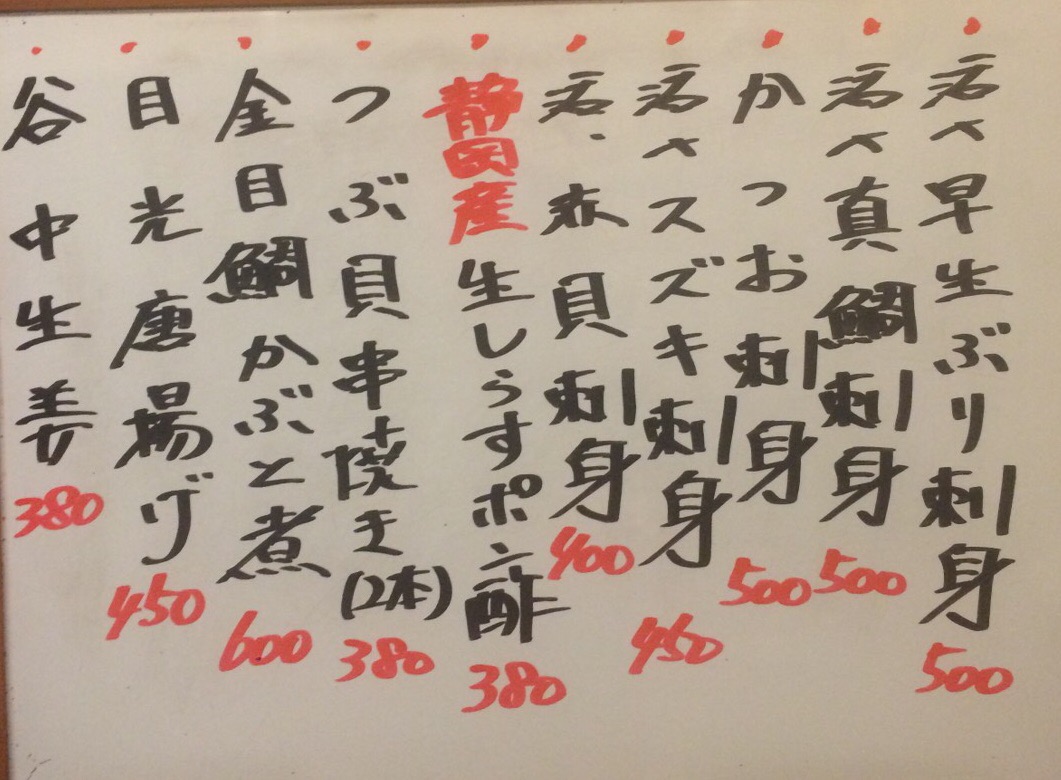 活〆早生ぶり刺身 500
活〆真鯛刺身 500
かつお刺身 500
活〆スズキ刺身 450
活、赤貝刺身 400
静岡産生しらすポン酢 380
つぶ貝串焼き(2本) 380
金目鯛かぶと煮 600
目光唐揚げ 450
谷中生姜 380